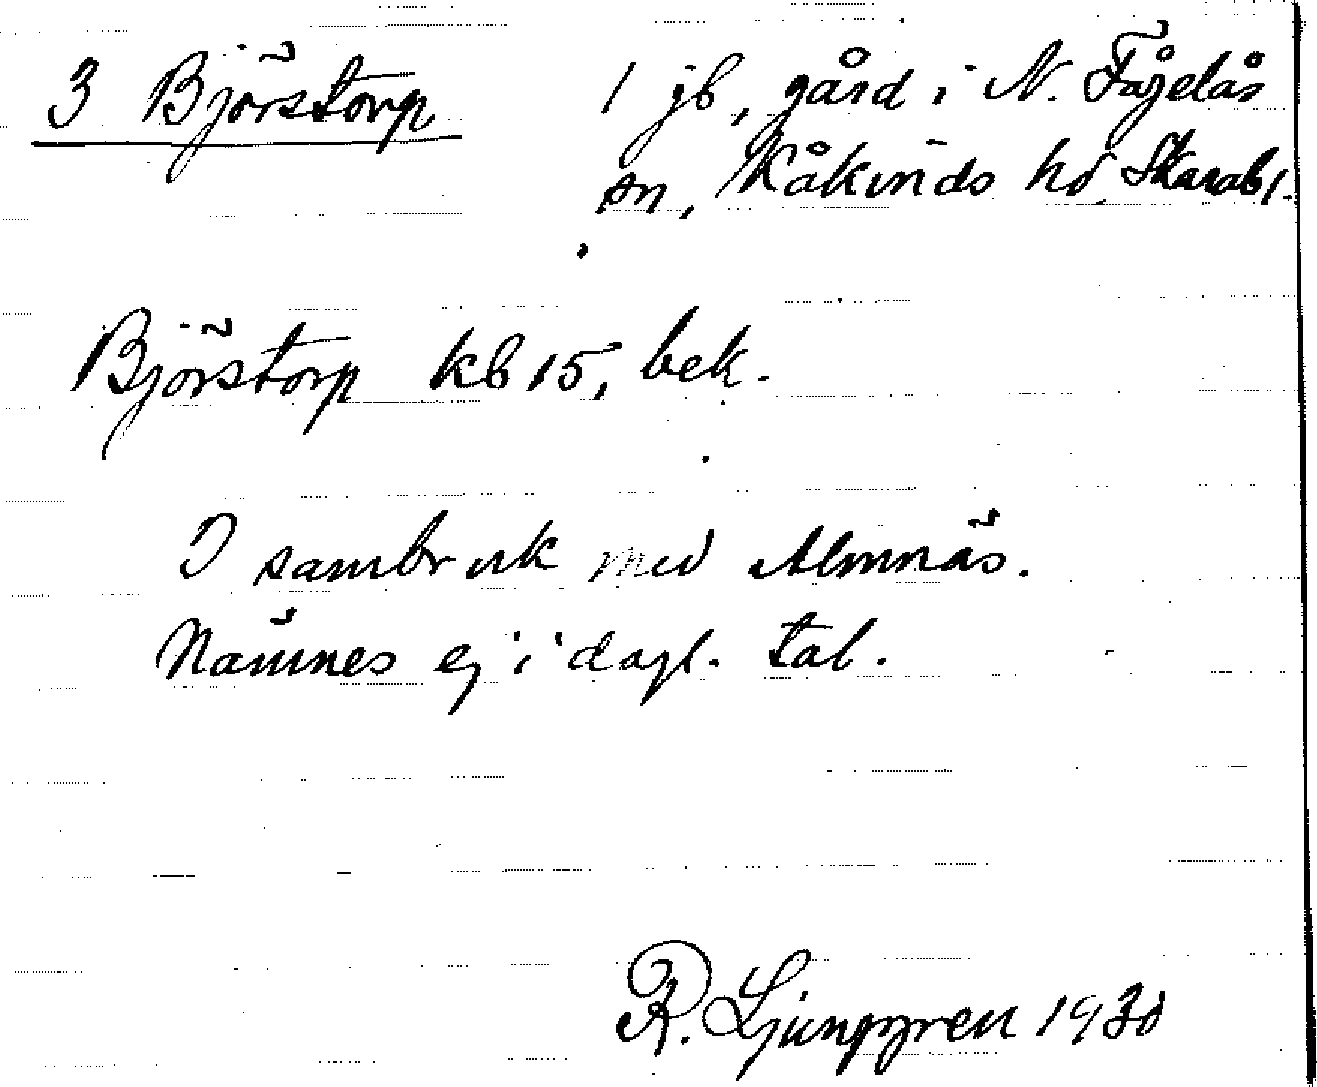 3 Björstorp 1 jb, gård i N. Fågelås
sn, Kåkinds hd Skarab l.
Björstorp kb 15, bek.
I sambruk med Almnäs.
Nämnes ej i dagl. tal.
R. Ljunggren 1930